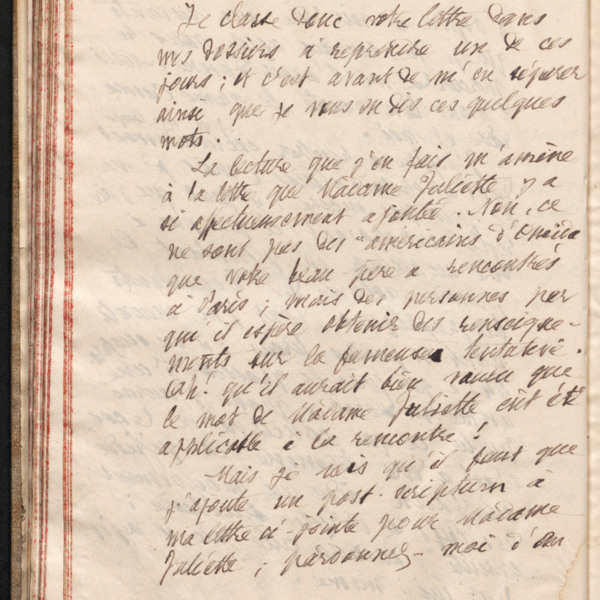 Je classe donc votre lettre dans
mes dossiers à reprendre un de ces
jours ; et c'est avant de m'en séparer
ainsi que je vous en dis ces quelques
mots.
La lecture que j'en fais m'amène
à la lettre que Madame Juliette y a
si affectueusement ajoutée. Non, ce
ne sont pas des "américains d'Omaha
que votre beau père a rencontrés
à Paris ; mais des personnes par
qui il espère obtenir des renseigne-
ments sur la fameuse tentative.
Ah! qu'il aurait bien valu que
le mot de Madame Juliette eût été
applicable à la rencontre !
Mais je vois qu'il faut que
j'ajoute un post-scriptum à
ma lettre ci-jointe pour Madame
Juliette ; pardonnez-moi d'en